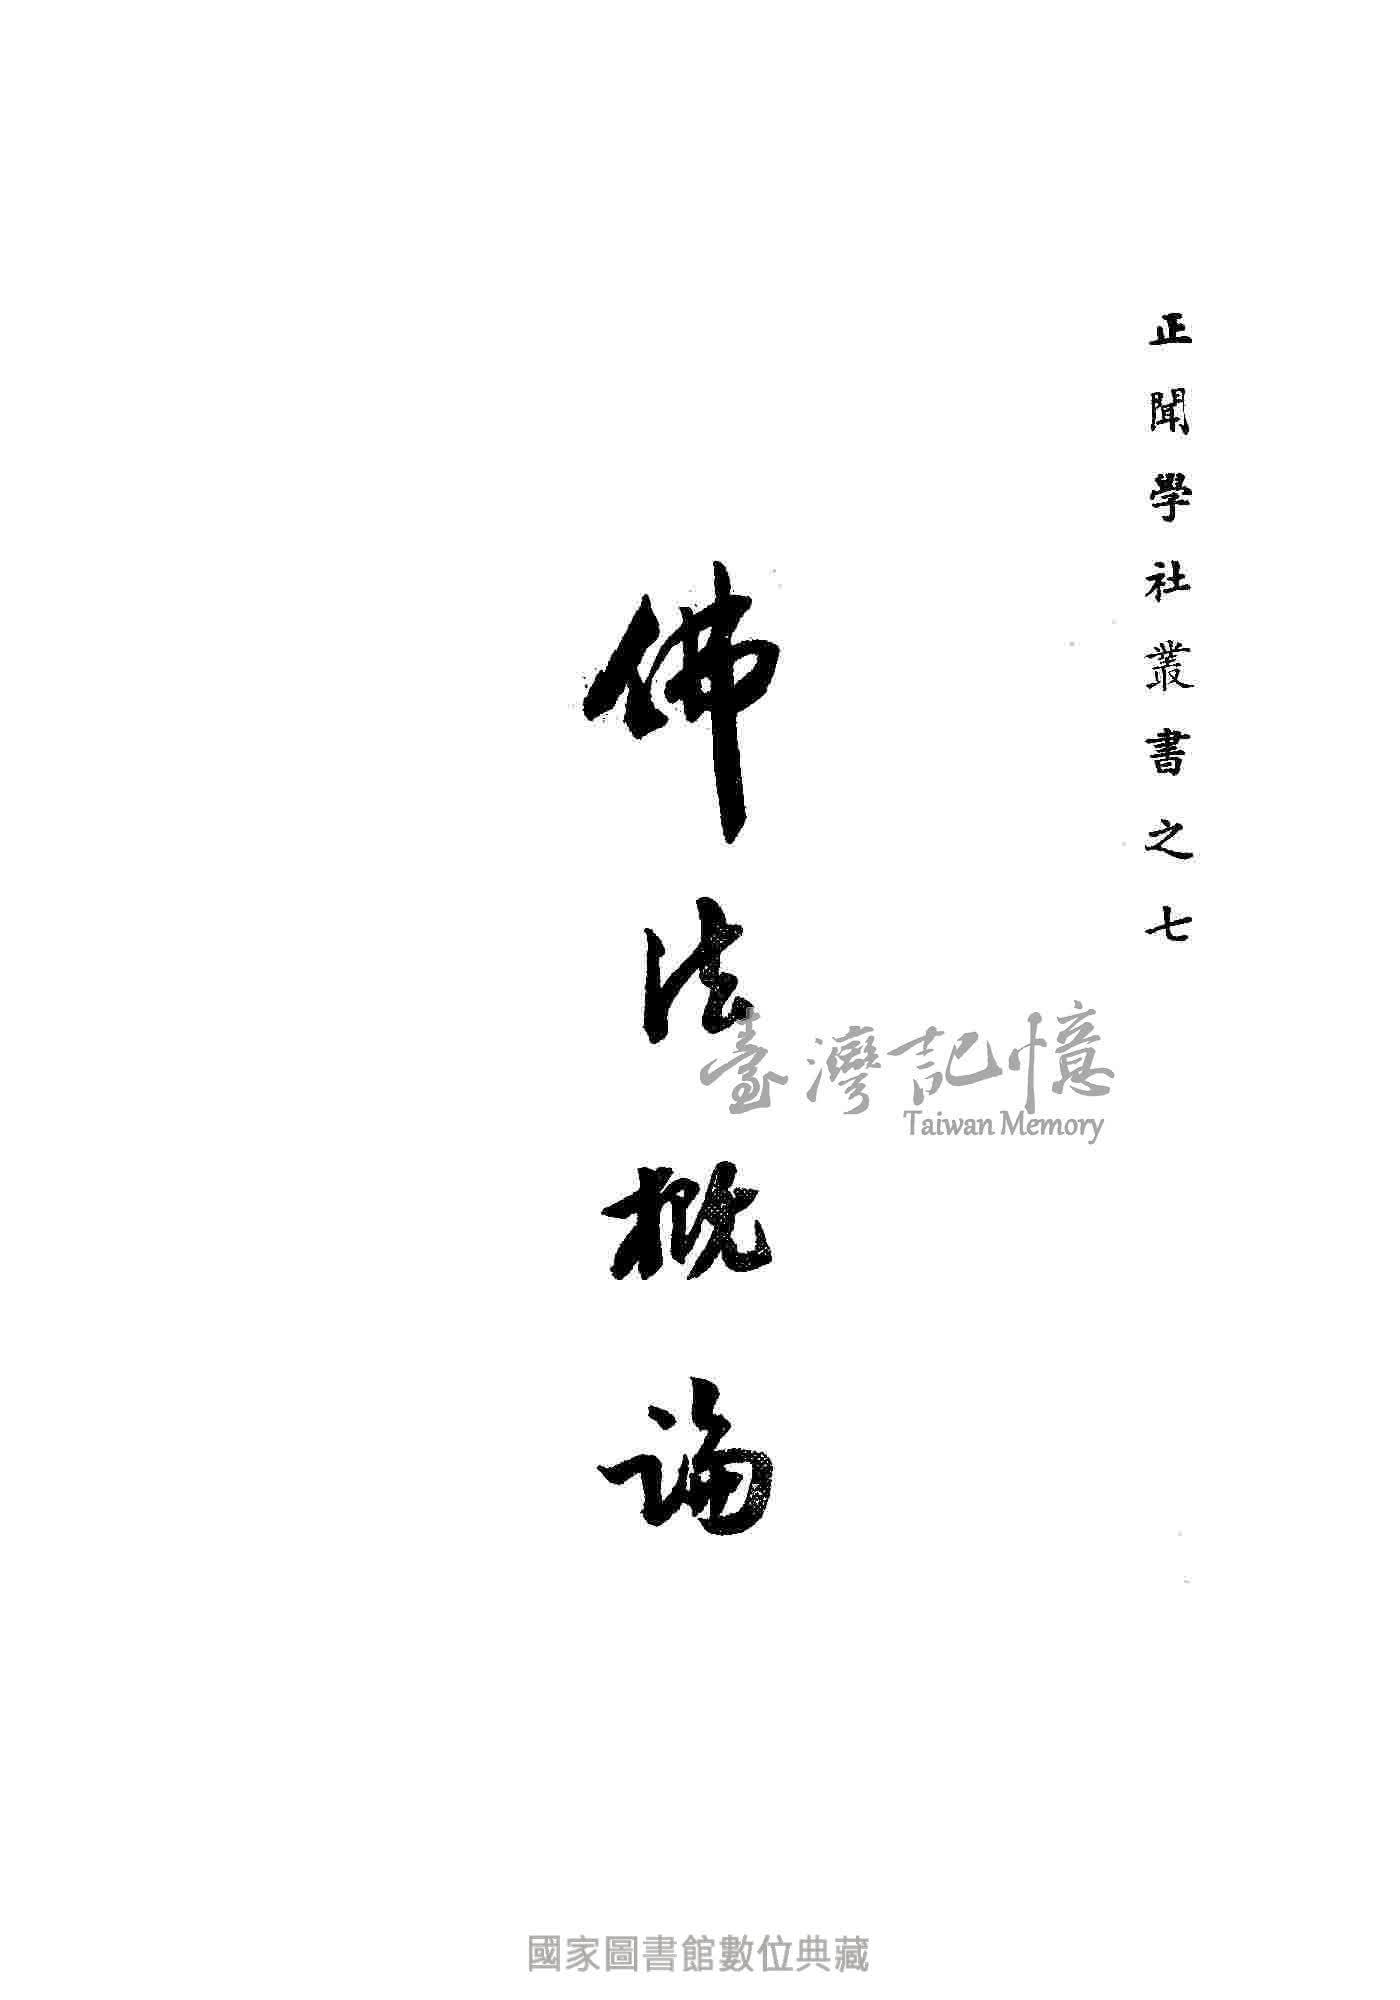 正聞學社叢書之七
佛法概論
臺灣記憶
Taiwan Memory
國家圖書館數位典藏